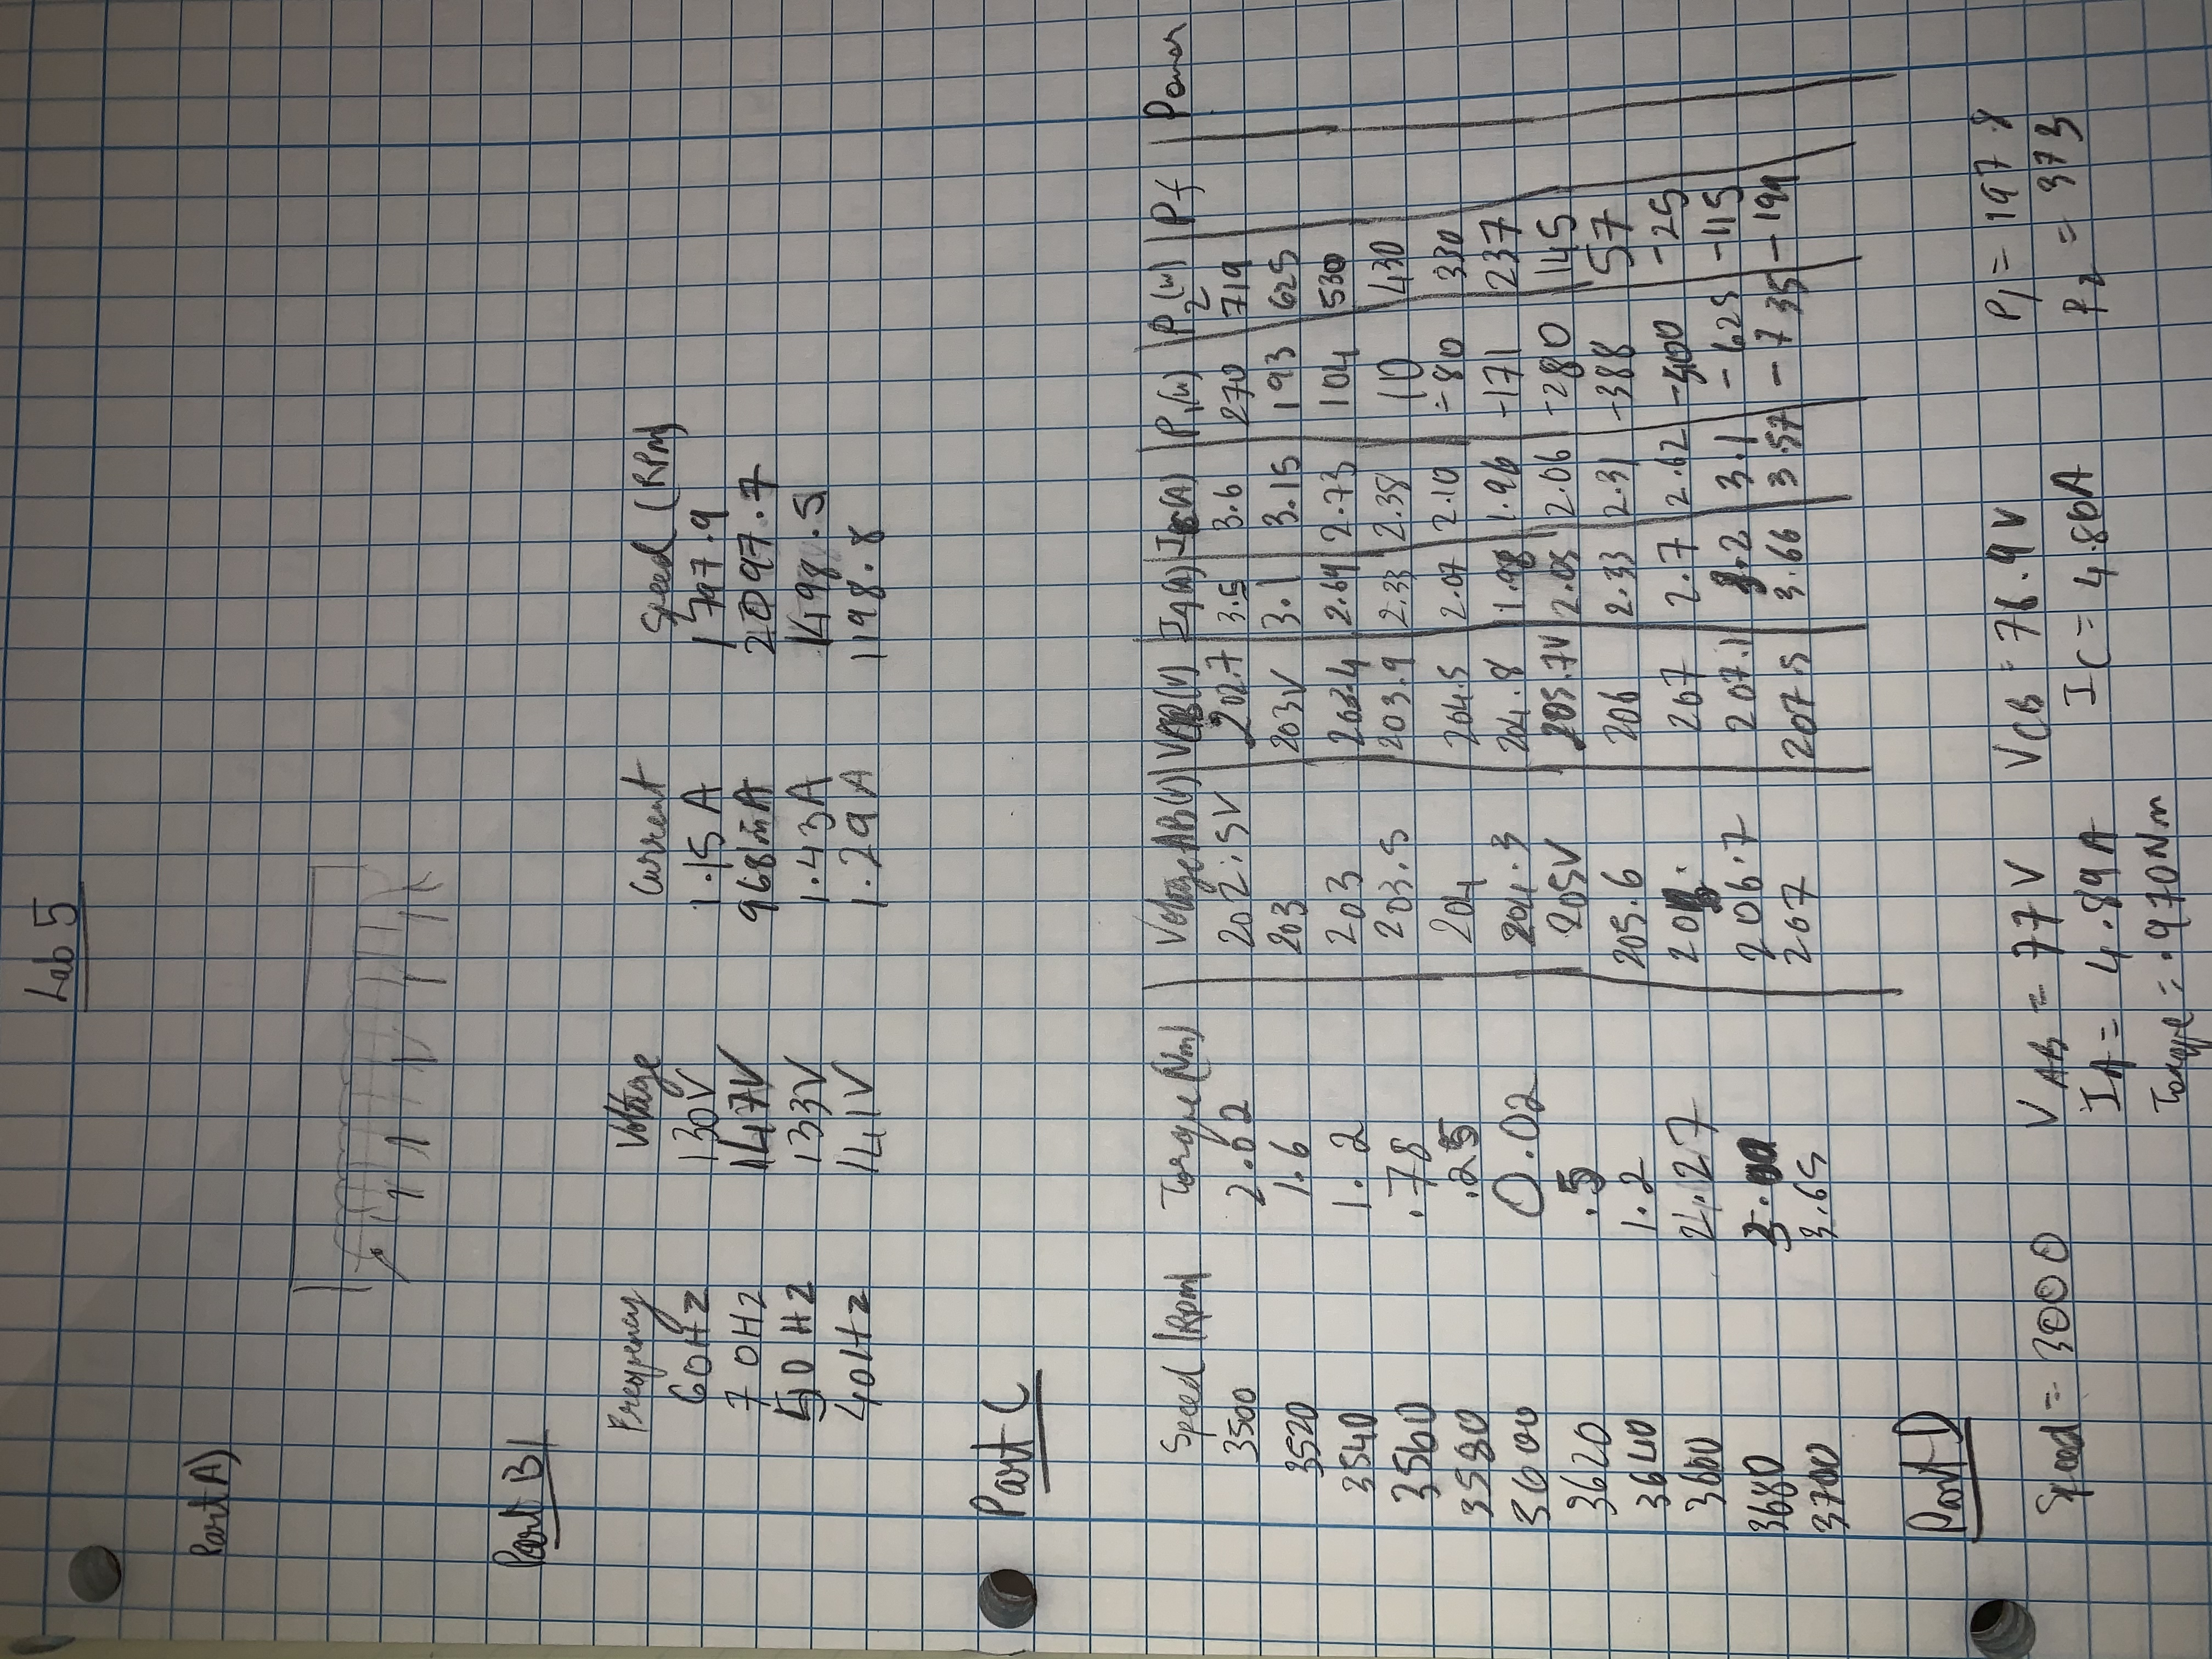 Lab 5
Part A)
Part B)
Frequency Voltage Current Speed (RPM)
60Hz 130V 1.15 A 1797.9
70Hz 147V 968mA 2097.7
50 Hz 133V 1.43A 1498.5
40Hz 141V 1.29A 1198.8
Part C
Speed (Rpm) Torque (Nm) Voltage AB(V) VCB(V) IA(A) IC(A) P1(W) P2(W) Pf Power
3500 2.02 202.5V 202.7 3.5 3.6 270 719
3520 1.6 203 203V 3.1 3.15 193 625
3540 1.2 203 203.4 2.69 2.73 104 530
3560 .78 203.5 203.9 2.33 2.38 10 430
3580 .25 204 204.5 2.07 2.10 -80 330
3600 0.02 204.3 204.8 1.98 1.96 -171 237
3620 .5 205V 205.7V 2.05 2.06 -280 145
3640 1.2 205.6 206 2.33 2.31 -388 57
3660 2.27 207 2.7 2.62 -500 -25
3680 206.7 207.1 3.2 3.1 -625 -115
3700 3.65 207 207.5 3.66 3.57 -735 -199
Part D
Speed = 3000 VAB = 77V VCB = 76.9V P1 = 197.8
IA = 4.89A IC = 4.80A P2 = 373
Torque = .970Nm